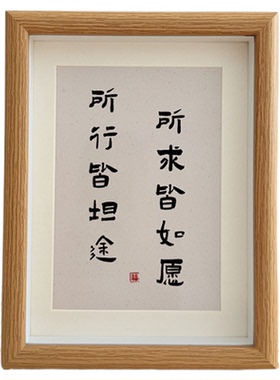 所求皆如愿
所行皆坦途